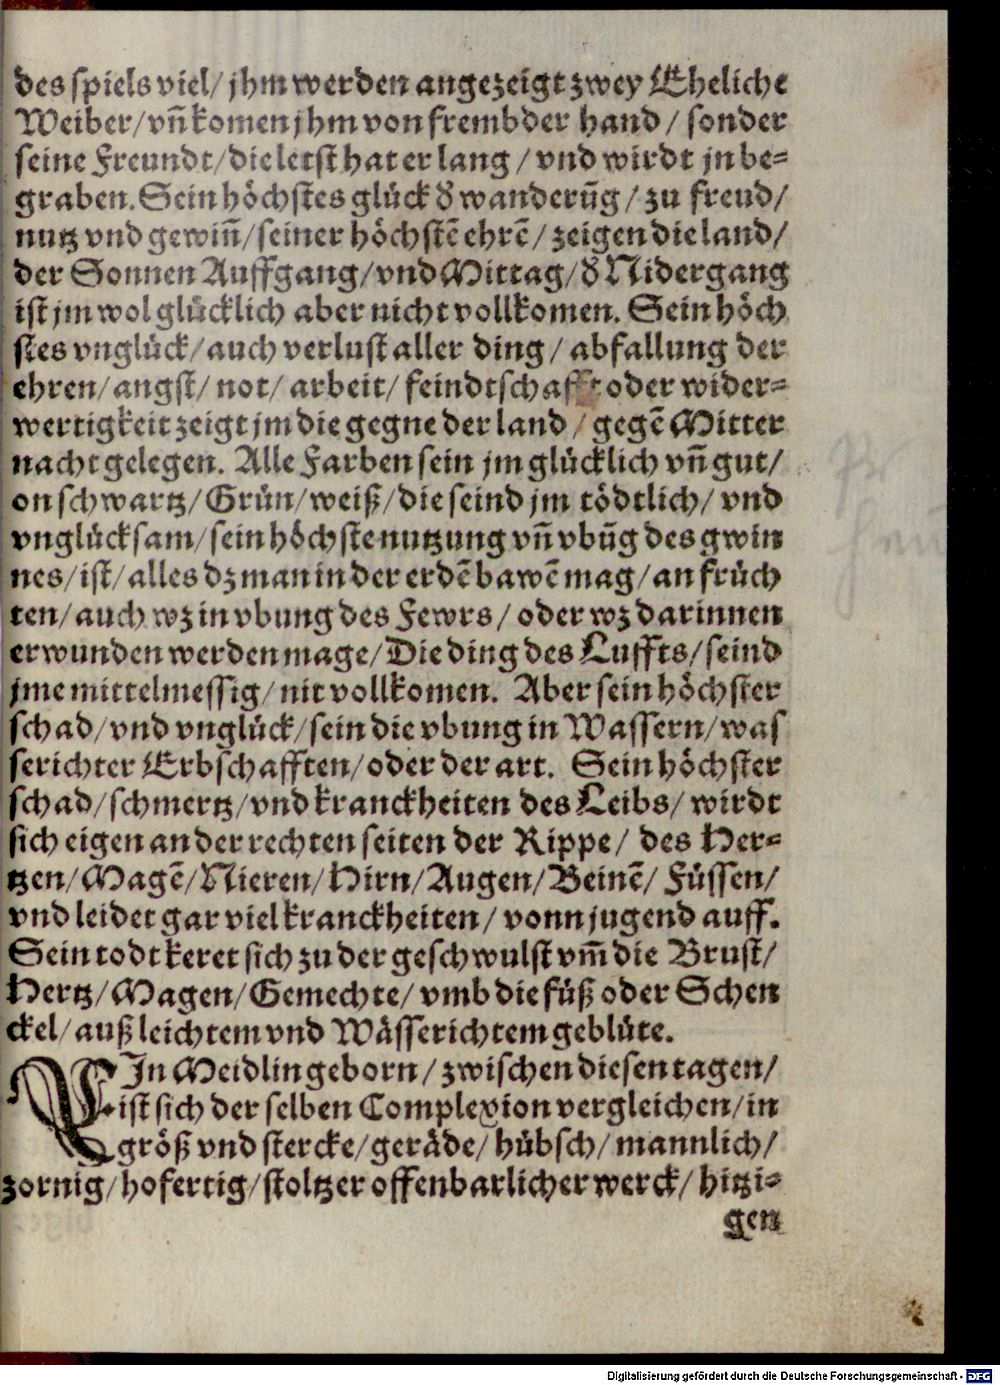 des spiels viel/ jhm werden angezeigt zwey Eheliche
Weiber/ vñ komen jhm von frembder hand/ sonder
seine Freundt/ die letst hat er lang/ vnd wirdt jn be-
graben. Sein höchstes glück ð wanderũg/ zu freud/
nutz vnd gewiñ/ seiner höchstẽ ehrẽ/ zeigen die land/
der Sonnen Auffgang/ vnd Mittag/ ð Nidergang
ist jm wol glücklich aber nicht vollkomen. Sein höch
stes vnglück/ auch verlust aller ding/ abfallung der
ehren/ angst/ not/ arbeit/ feindtschafft oder wider-
wertigkeit zeigt jm die gegne der land/ gegẽ Mitter
nacht gelegen. Alle Farben sein jm glücklich vñ gut/
on schwartz/ Grün/ weiß/ die seind jm tödtlich/ vnd
vnglücksam/ sein höchste nutzung vñ vbũg des gwin
nes/ ist/ alles dz man in der erdẽ bawẽ mag/ an früch
ten/ auch wz in vbung des Fewrs/ oder wz darinnen
erwunden werden mage/ Die ding des Luffts/ seind
jme mittelmessig/ nit vollkomen. Aber sein höchster
schad/ vnd vnglück/ sein die vbung in Wassern/ was
serichter Erbschafften/ oder der art. Sein höchster
schad/ schmertz/ vnd kranckheiten des Leibs/ wirdt
sich eigen an der rechten seiten der Rippe/ des Her-
tzen/ Magẽ/ Nieren/ Hirn/ Augen/ Beinẽ/ Füssen/
vnd leidet gar viel kranckheiten/ vonn jugend auff.
Sein todt keret sich zu der geschwulst vm̃ die Brust/
Hertz/ Magen/ Gemechte/ vmb die füß oder Schen
ckel/ auß leichtem vnd Wässerichtem geblüte.
EIn Meidlin geborn/ zwischen diesen tagen/
ist sich der selben Complexion vergleichen/ in
größ vnd stercke/ geräde/ hübsch/ mannlich/
zornig/ hofertig/ stoltzer offenbarlicher werck/ hitzi-
gen
Digitalisierung gefördert durch die Deutsche Forschungsgemeinschaft - DFG